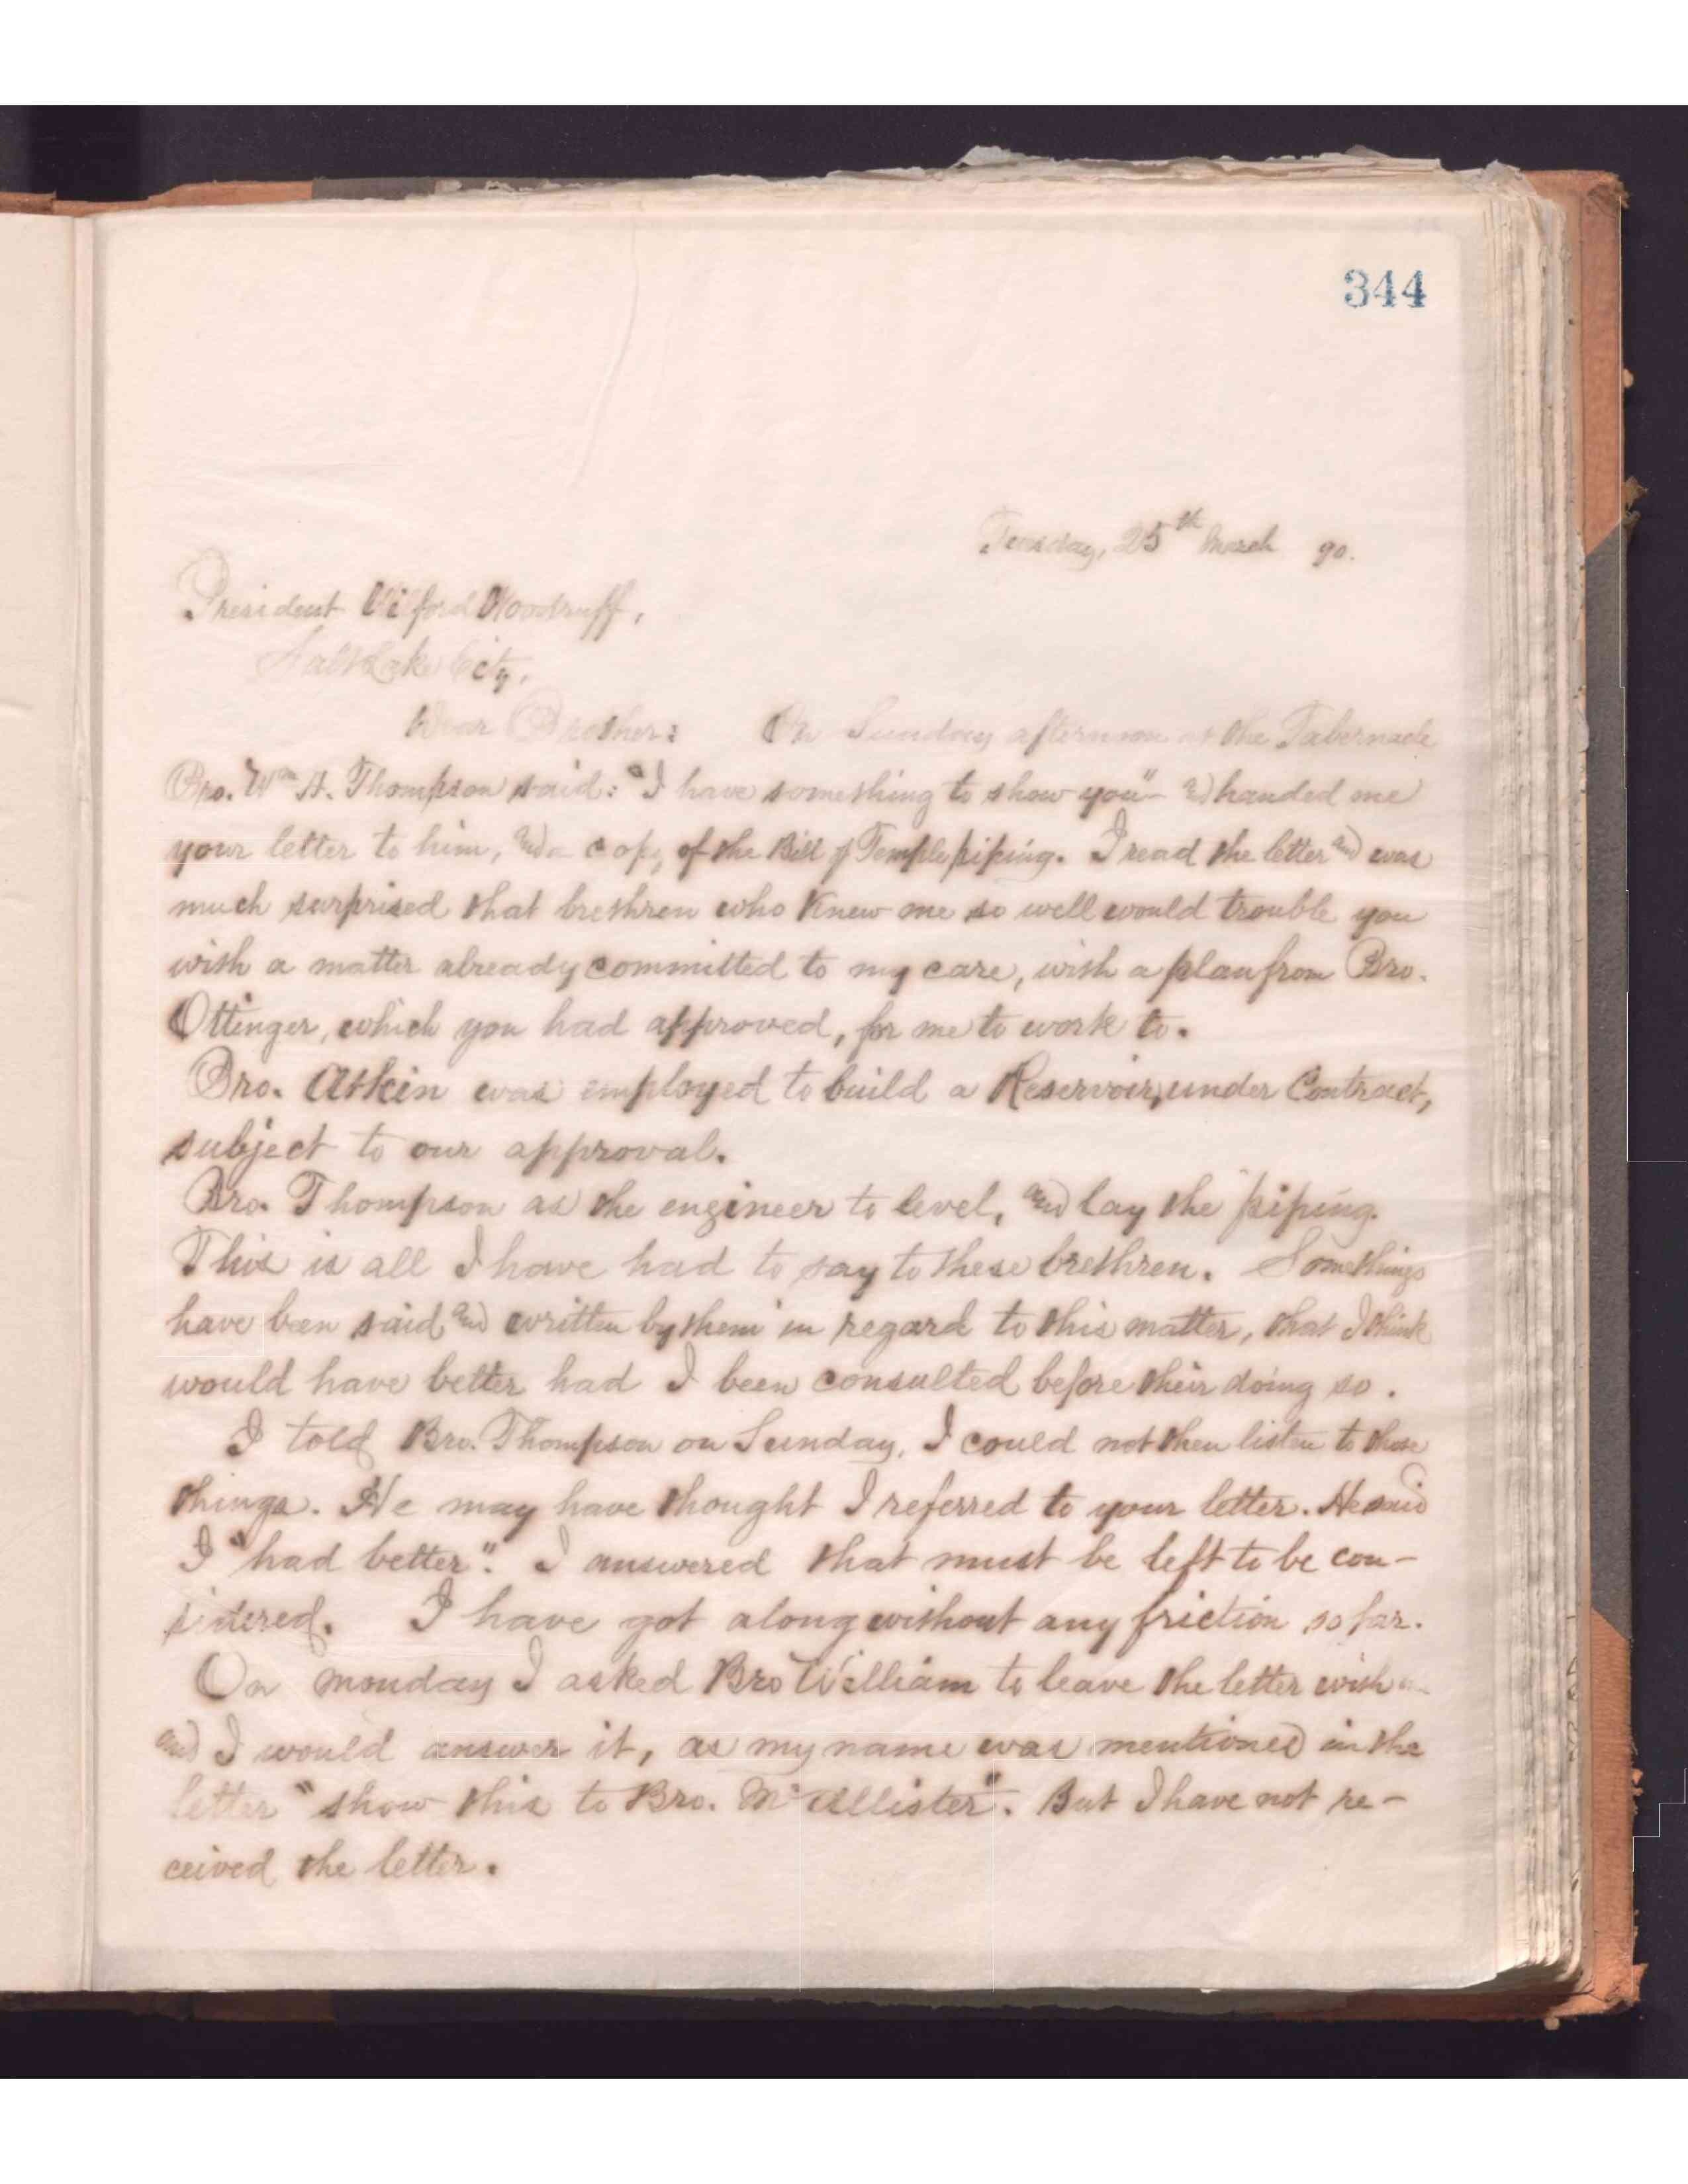 344
Tuesday, 25th March 90.
President Wilford Woodruff,
Salt Lake City,
Dear Brother: On Sunday afternoon at the Tabernacle
Bro. Wm A. Thompson said: "I have something to show you" - and handed me
your letter to him, and a copy of the Bill of Temple piping. I read the letter and was
much surprised that brethren who knew me so well would trouble you
with a matter already committed to my care, with a plan from Bro.
Ottinger, which you had approved, for me to work to.
Bro. Atkin was employed to build a Reservoir, under Contract,
subject to our approval.
Bro. Thompson as the engineer to level, and lay the piping.
This is all I have had to say to these brethren. Some things
have been said and written by them in regard to this matter, that I think
would have better had I been consulted before their doing so.
I told Bro. Thompson on Sunday, I could not then listen to those
things. He may have thought I referred to your letter. He said
I "had better". I answered that must be left to be con-
sidered. I have got along without any friction so far.
On monday I asked Bro William to leave the letter with
and I would answer it, as my name was mentioned in the
letter "show this to Bro. McAllister". But I have not re-
ceived the letter.